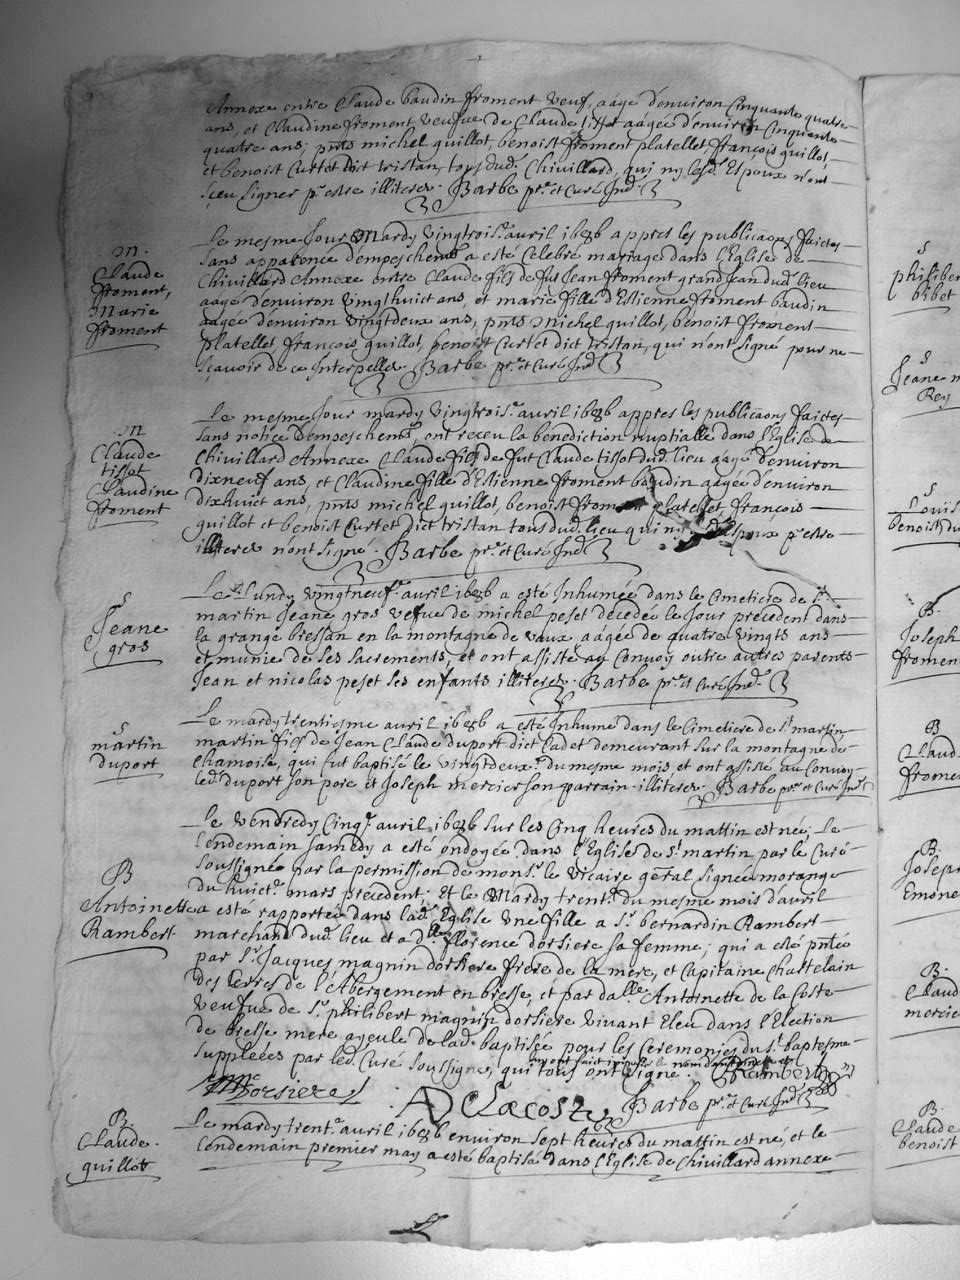 Annexe entre Claude baudin froment veuf, aagé d'environ Cinquante quatre
ans, et Claudine froment, veufue de Claude tissot aagée d'environ Cinquante
quatre ans; pnts michel guillot, benoist froment platellet, françois guillot,
et benoist Curtet dit tristan, tous dud. Chivillard, qui ny lesd. Espoux n'ont
sçeu signer pr estre illiteres. Barbe ptre et Curé Ind
M.
Claude
froment,
Marie
froment
Le mesme Jour Mardy Vingtroise avril 1686 appres les publicaons faictes
sans apparence d'empeschemt a esté Celebré mariage dans l'Eglise de
Chivillard Annexe entre Claude fils de fut Jean froment grand Jean dud. lieu
aagé d'environ vingthuict ans, et marie fille d'Estienne froment baudin
aagée d'environ vingtdeux ans, pnts michel guillot, benoist froment
platellet, françois guillot, benoist Curtet dict tristan, qui n'ont signé pour ne
sçavoir de ce Interpellés. Barbe ptre et Curé Ind
M
Claude
tissot
Claudine
froment
Le mesme Jour mardy vingtroise avril 1686 appres les publicaons faictes
sans notice d'empeschemt, ont receu la benediction nuptialle dans l'Eglise de
Chivillard Annexe Claude fils de fut Claude tissot dud. lieu aagé d'environ
dixneuf ans, et Claudine fille d'Estienne froment baudin aagée d'environ
dixhuict ans, pnts michel guillot, benoist froment platellet, françois
guillot et benoist Curtet dict tristan tous dud. lieu qui ny lesd. Espoux pr estre
illiteres n'ont signé. Barbe ptre et Curé Ind
S
Jeane
gros
Le Lundy vingtneufe avril 1686 a esté Inhumée dans le Cimetiere de St
martin Jeane gros vefue de michel peset decedée le Jour precedent dans
la grange bressan en la montagne de vaux aagée de quatre vingts ans
et munie de ses sacrements, et ont assisté au Convoy outre autres parents
Jean et nicolas peset ses enfants illiteres. Barbe ptre et Curé Ind
S
martin
duport
Le mardy trentiesme avril 1686 a esté Inhumé dans le Cimetiere de St martin
martin fils de Jean Claude duport dict Cadet demeurant sur la montagne de
Chamoise, qui fut baptisé le vingtdeuxe du mesme mois et ont assisté au Convoy
led. duport son pere et Joseph mercier son parrain illiteres. Barbe ptre et Curé Ind
B
Antoinette
Rambert
Le vendredy Cinqe avril 1686 sur les Cinq heures du mattin est née, Le
Lendemain samedy a esté ondoyée dans l'Eglise de St martin par le Curé
soussigné par la permission de monsr le vicaire gñral signée morange
du huicte mars precedent. Et le Mardy trente du mesme mois d'avril
a esté rapportée dans lad. Eglise une fille a Sr bernardin Rambert
marchand dud. lieu et a dlle florence dorsiere sa femme; qui a esté pntée
par Sr Jacques magnin dorsiere frere de la mere, et Capitaine Chastelain
des terres de l'Abergement en bresse, et par dalle Antoinette de la Coste
veufue de Sr philibert magnin dorsiere vivant Eleu dans l'Election
de bresse mere ayeule de lad. baptisée pour les Ceremonies du St baptesme
suppleées par led. Curé soussigné, qui tous ont signé. Rambert
Dorsiere
A Delacoste
Barbe ptre et Curé Ind
B
Claude
guillot
Le mardy trente avril 1686 environ sept heures du mattin est né, et le
Lendemain premier may a esté baptisé dans l'Eglise de Chivillard annexe
S
philiber
bibet
S
Jeane m
Rey
S
Louis
benoist du
B.
Joseph
fromen
B
Claud
frome
B.
Joseph
Emone
B.
Claud
mercie
B.
Claude
benoist